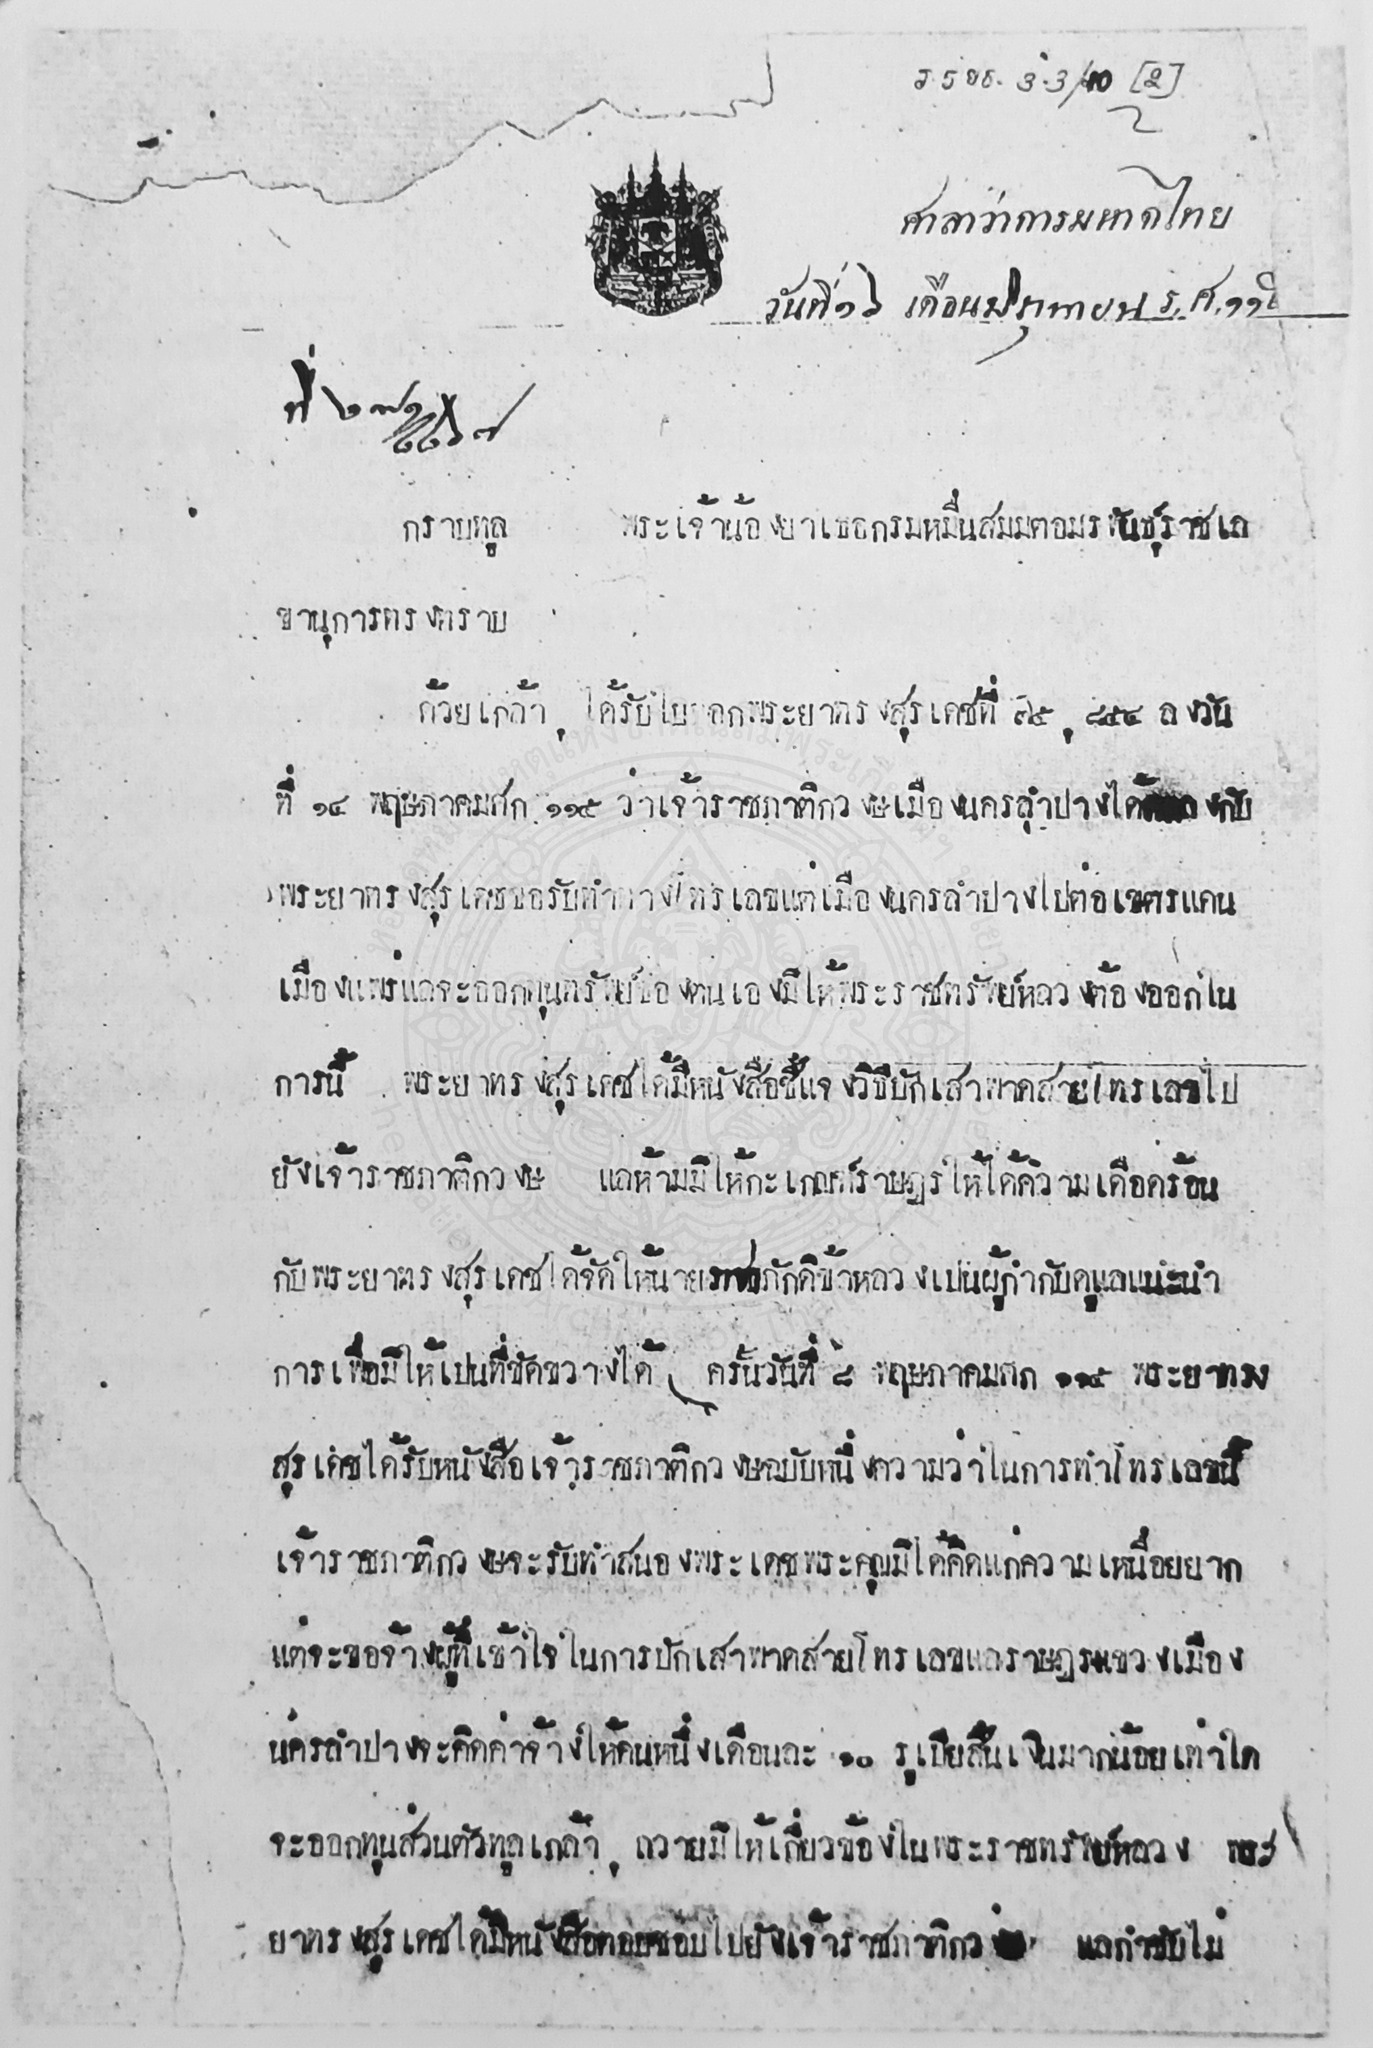 ร.๕ ยธ. ๓.๓/๑๐ [2]
ศาลาว่าการมหาดไทย
วันที่ ๑๖ เดือนมิถุนายน ร.ศ. ๑๑๕
ที่
กราบทูล พระเจ้าน้องยาเธอกรมหมื่นสมมตอมรพันธุ์ราชเล
ขานุการทรงทราบ
ด้วยเกล้า ฯ ได้รับใบบอกพระยาทรงสุรเดชที่ ๙๕ , ๘๕๔ ลงวัน
ที่ ๑๔ พฤษภาคมศก ๑๑๕ ว่าเจ้าราชภาติกวงษเมืองนครลำปางได้ กับ
พระยาทรงสุรเดชขอรับทำทางโทรเลขแต่เมืองนครลำปางไปต่อเขตรแดน
เมืองแพร่แลจะออกทุนทรัพย์ของตนเองมิให้พระราชทรัพย์หลวงต้องออกใน
การนี้ พระยาทรงสุรเดชได้มีหนังสือชี้แจงวิธีปักเสาพาดสายโทรเลขไป
ยังเจ้าราชภาติกวงษ แลห้ามมิให้กะเกณฑ์ราษฎรให้ได้ความเดือดร้อน
กับพระยาทรงสุรเดชได้จัดให้นายราชภักดีข้าหลวงเปนผู้กำกับดูแลแนะนำ
การเพื่อมิให้เปนที่ขัดขวางได้ ครั้นวันที่ ๘ พฤษภาคมศก ๑๑๕ พระยาทรง
สุรเดชได้รับหนังสือเจ้าราชภาติกวงษฉบับหนึ่งความว่าในการทำโทรเลขนี้
เจ้าราชภาติกวงษจะรับทำสนองพระเดชพระคุณมิได้คิดแก่ความเหนื่อยยาก
แต่จะขอจ้างผู้ที่เข้าใจในการปักเสาพาดสายโทรเลขแลราษฎรแขวงเมือง
นครลำปางจะคิดค่าจ้างให้คนหนึ่งเดือนละ ๑๐ รูเปียสิ้นเงินมากน้อยเท่าใด
จะออกทุนส่วนตัวทูลเกล้า ฯ ถวายมิให้เกี่ยวข้องในพระราชทรัพย์หลวง พระ
ยาทรงสุรเดชได้มีหนังสือตอบขอบไปยังเจ้าราชภาติกวงษ แลกำชับไม่